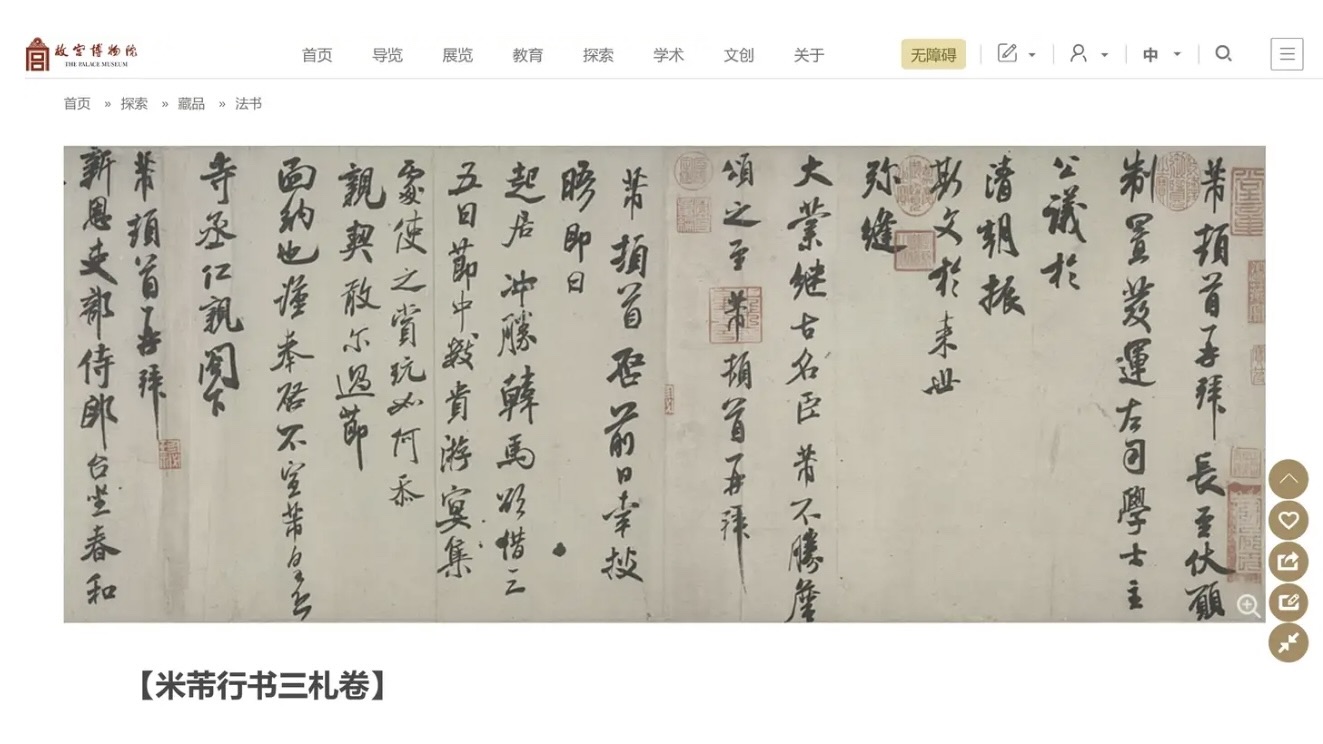 故宫博物院
THE PALACE MUSEUM
首页 导览 展览 教育 探索 学术 文创 关于 无障碍 中
首页 » 探索 » 藏品 » 法书
芾頓首再拜長至伏願
制置發運左司學士主
公議於
清朝振
斯文於来世
弥縫
大業継古名臣芾不勝
頌之至芾頓首再拜
芾頓首啓前日幸披
晤即日
起居冲勝韓馬欲借三
五日節中數貴游宴集
處使之賞玩如何忝
親契敢尔過節
面納也謹奉啓不宣芾皇恐
寺丞仁親閣下
芾頓首再拜
新恩吏部侍郎台坐春和
【米芾行书三札卷】